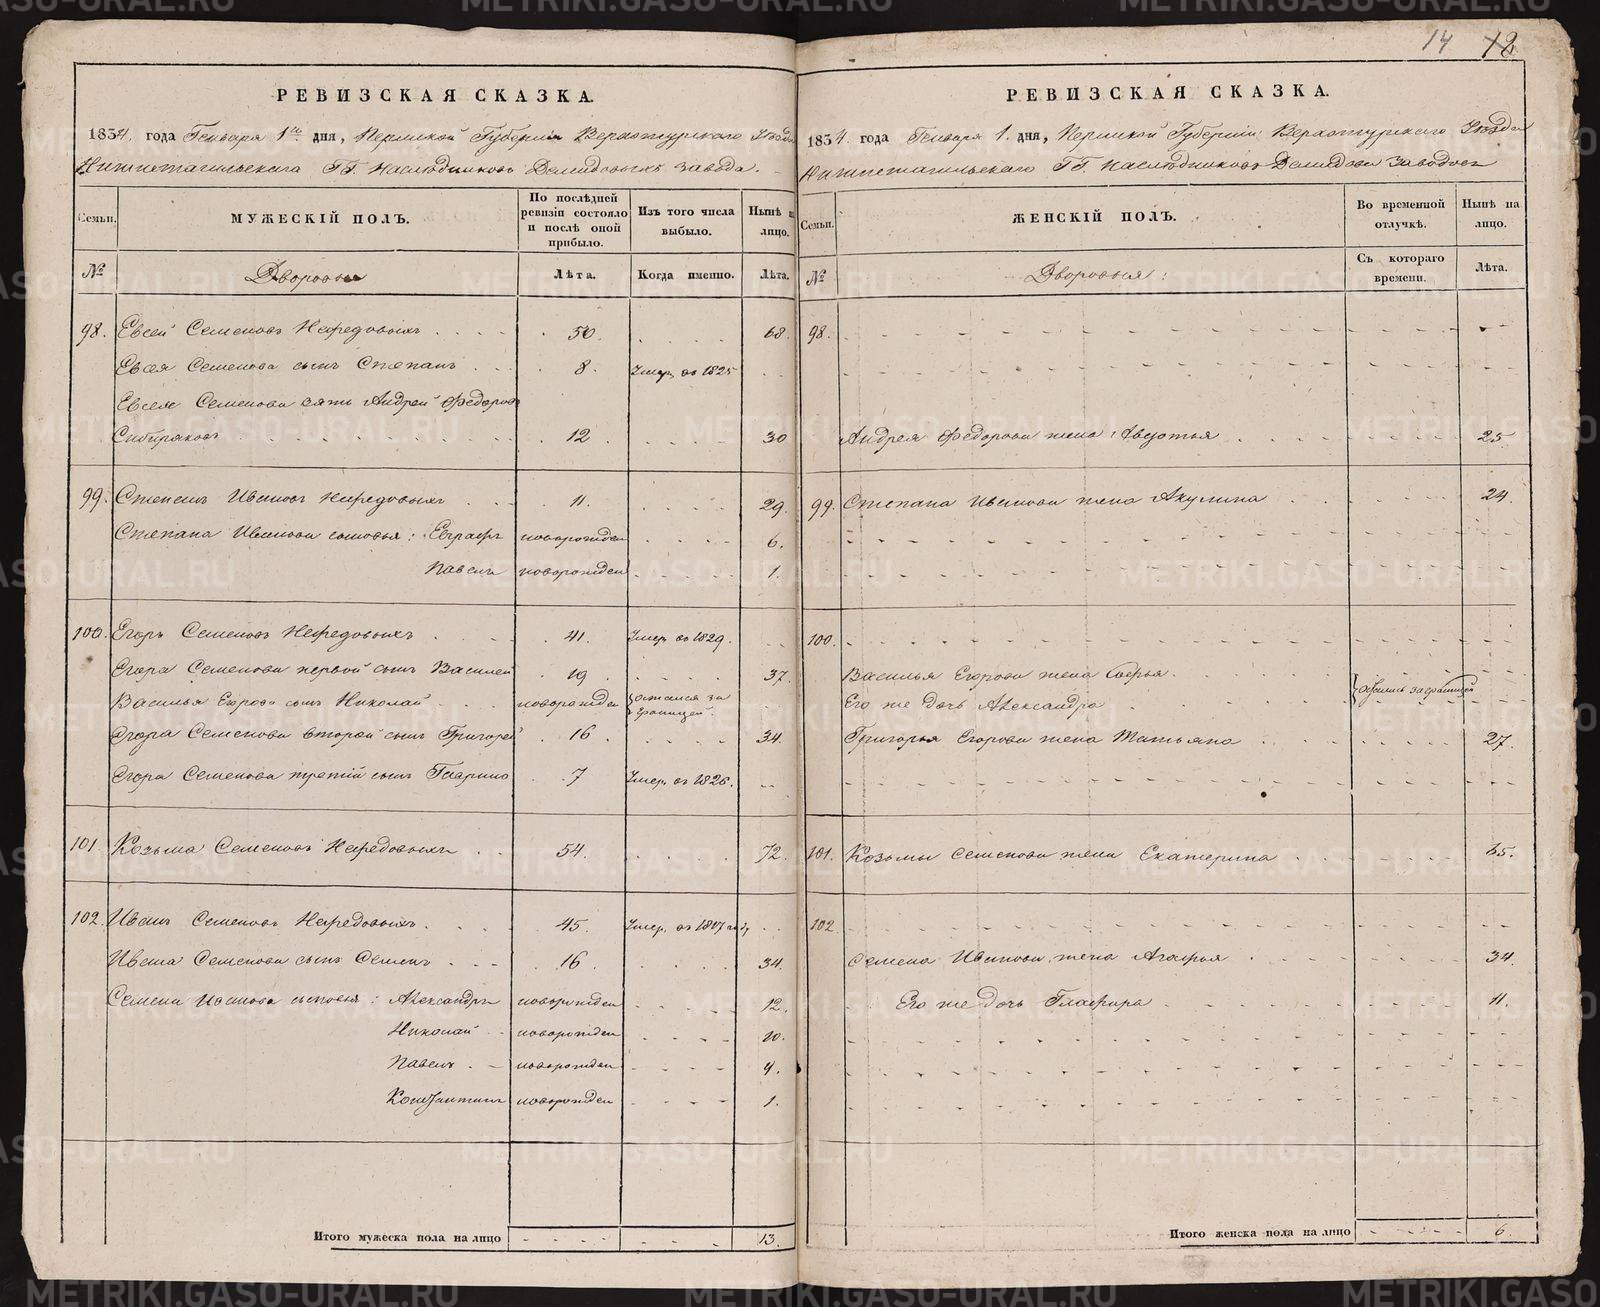 14 12
РЕВИЗСКАЯ СКАЗКА.
1834. года Генваря 1го дня, Пермской Губернии Верхотурскаго Уѣзда
Нижнетагильскаго ГГ. Наслѣдниковъ Демидовыхъ завода.
Семьи.
МУЖЕСКІЙ ПОЛЪ.
По послѣдней ревизіи состояло и послѣ оной прибыло.
Изъ того числа выбыло.
Нынѣ на лицо.
№
Дворовые
Лѣта.
Когда именно.
Лѣта.
98. Евсей Семеновъ Нефедовыхъ 50 68.
Евсея Семенова сынъ Степанъ 8. Умер. въ 1825
Евсея Семенова зять Андрей Федоровъ
Сибиряковъ 12 30
99. Степанъ Ивановъ Нефедовыхъ 11. 29.
Степана Иванова сыновья: Евграфъ новорожден 6.
Павелъ новорожден 1.
100. Егоръ Семеновъ Нефедовыхъ 41. Умер. въ 1829.
Егора Семенова первой сынъ Василей 19 37.
Василья Егорова сынъ Николай новорожден остался за границей.
Егора Семенова второй сынъ Григорей 16. 34.
Егора Семенова третій сынъ 7 Умер. въ 1826.
101. Козьма Семеновъ Нефедовыхъ 54. 72.
102. Иванъ Семеновъ Нефедовыхъ 45. Умер. въ
Ивана Семенова сынъ Семенъ 16. 34.
Семена Иванова сыновья: Александръ новорожден 12.
Николай новорожден 10.
Павелъ новорожден 4.
Константинъ новорожден 1.
Итого мужеска пола на лицо 13.
РЕВИЗСКАЯ СКАЗКА.
1834. года Генваря 1. дня, Пермской Губерніи Верхотурскаго Уѣзда
Нижнетагильскаго ГГ. Наслѣдниковъ Демидовых заводовъ
Семьи.
ЖЕНСКІЙ ПОЛЪ.
Во временной отлучкѣ.
Нынѣ на лицо.
№
Дворовыя:
Съ котораго времени.
Лѣта.
98.
Андрея Федорова жена Авдотья 25
99. Степана Иванова жена Акулина 24.
100.
Василья Егорова жена Софья.
Его же дочь Александра остались за границей
Григорья Егорова жена Татьяна 27.
101. Козьмы Семенова жена Екатерина 65.
102
Семена Иванова жена Агафья 34.
Его же дочь Глафира 11.
Итого женска пола на лицо 6
METRIKI.GASO-URAL.RU